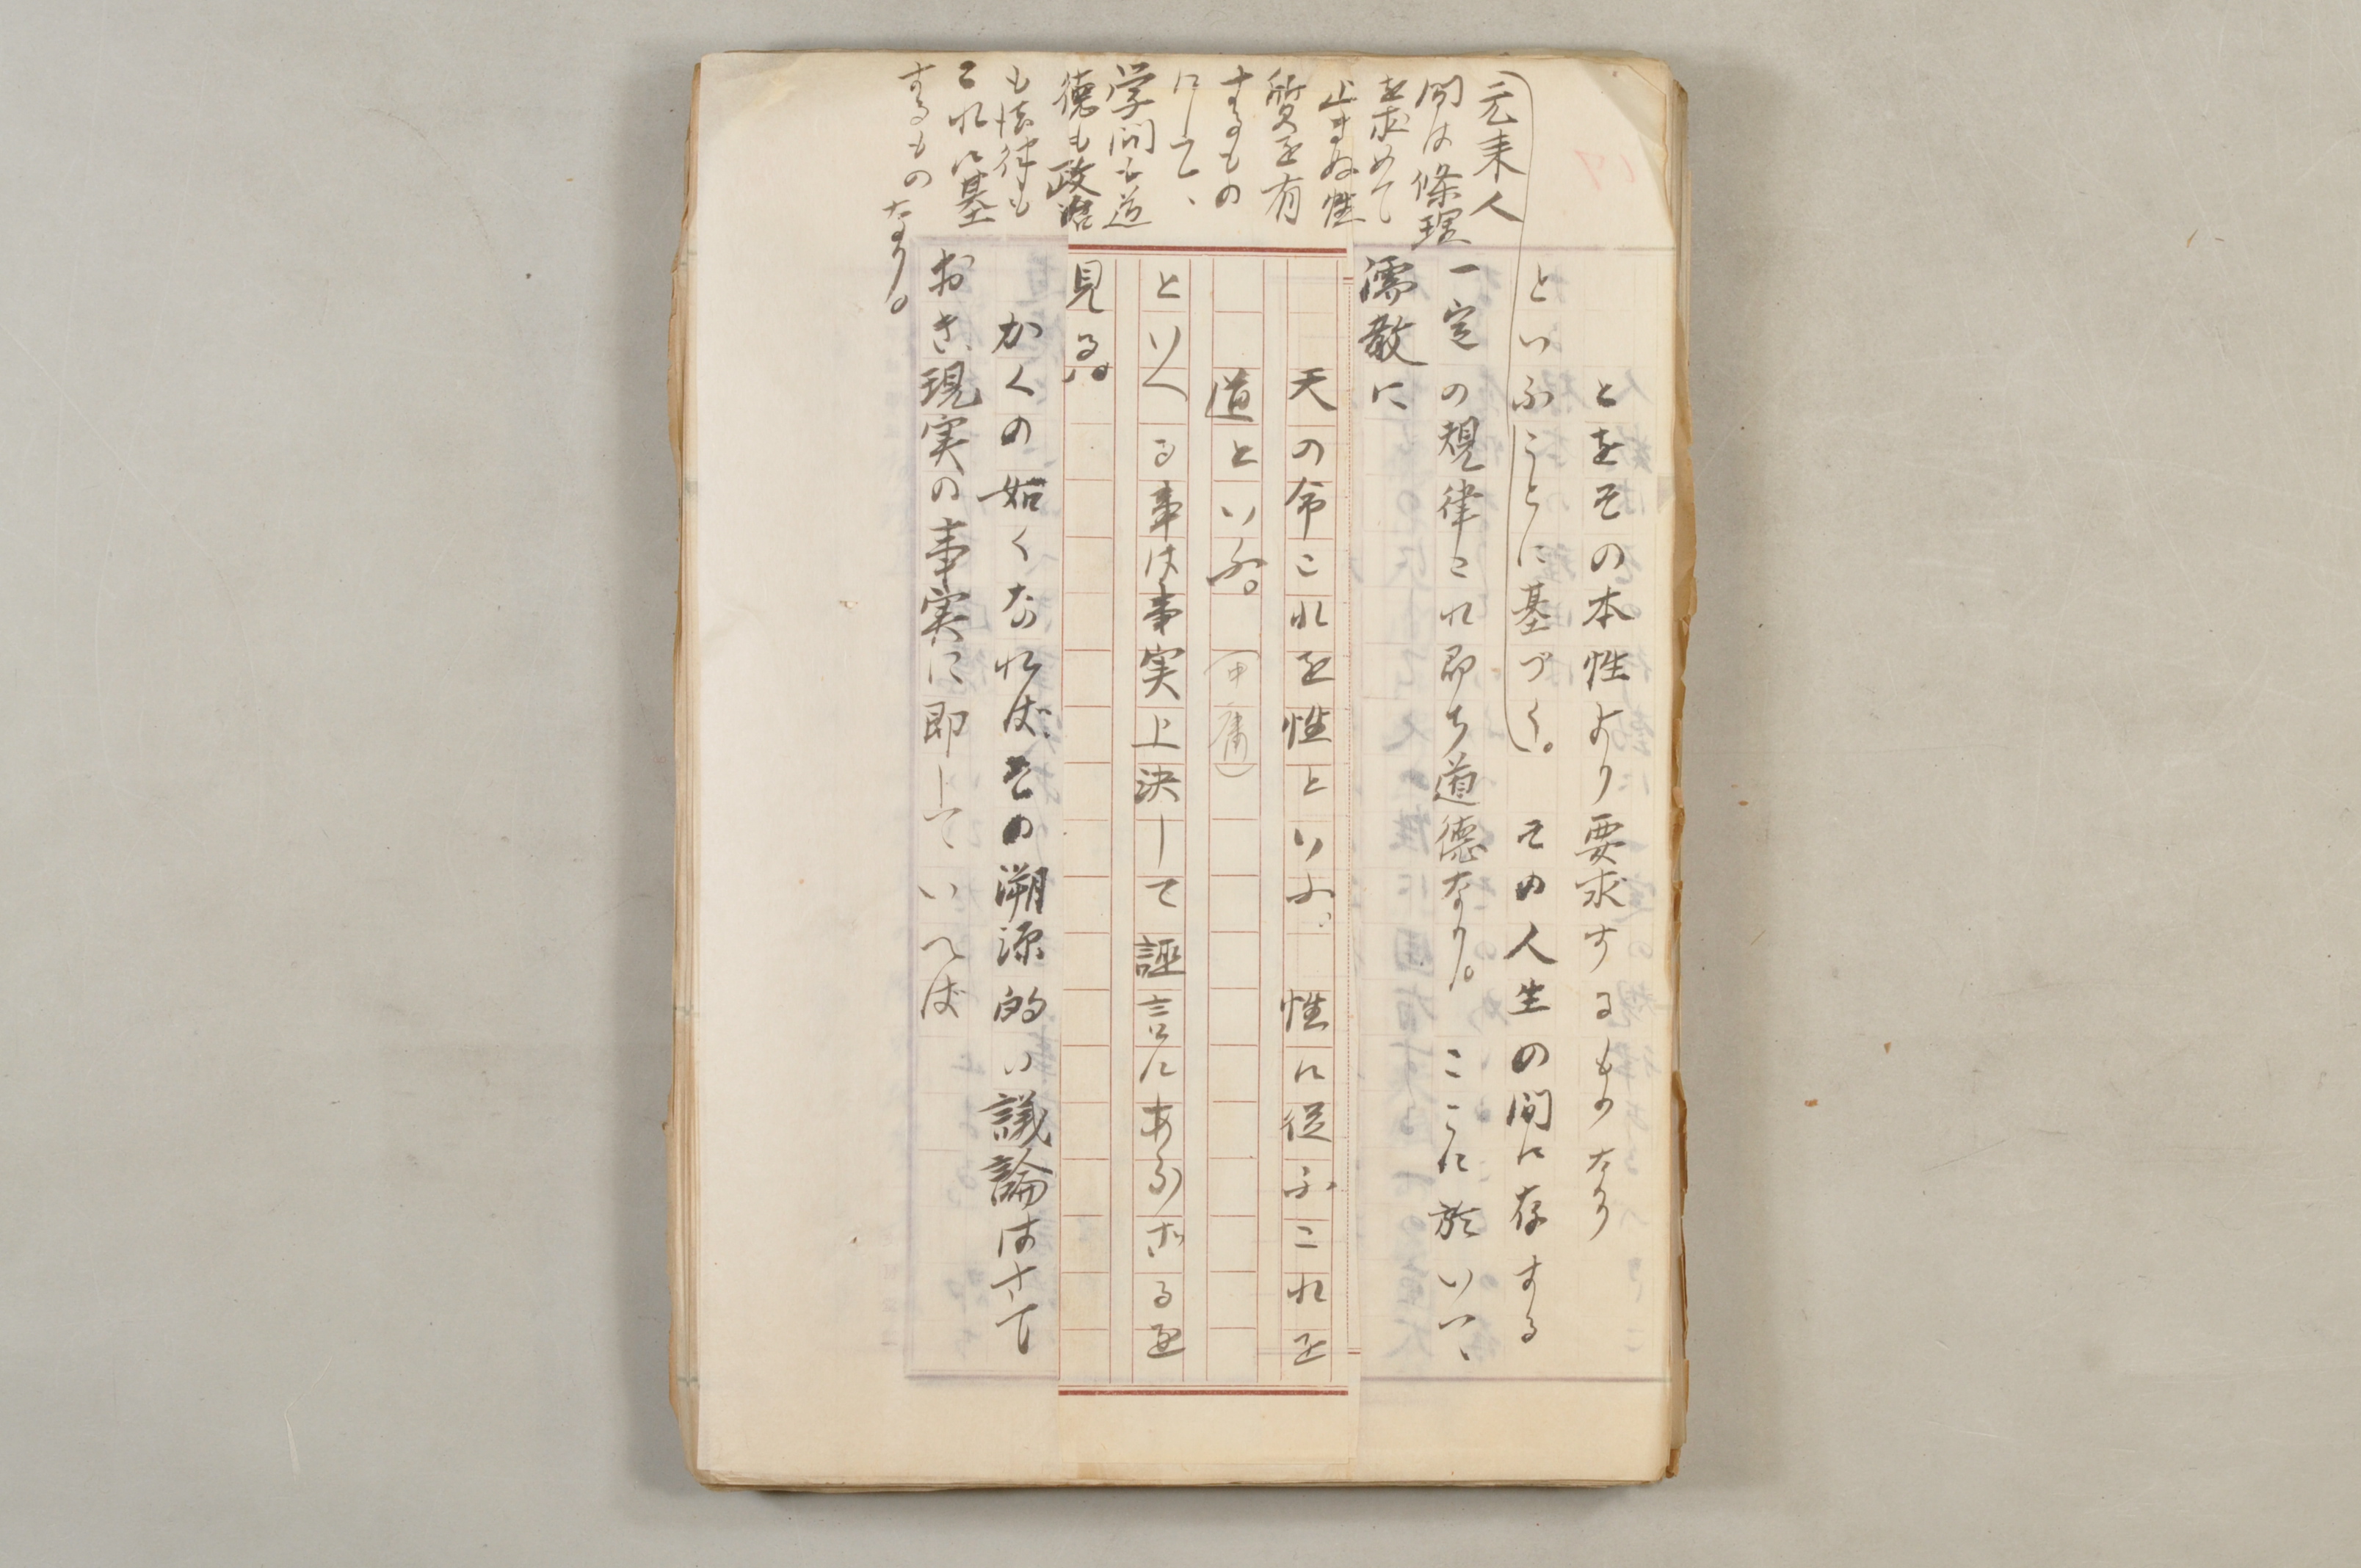 とをその本性より要求するものなり
といふことに基づく。その人生の間に存する
一定の規律これ即ち道徳なり。ここに於いて、
濡教に
天の命これを性といふ、性に従ふこれを
道といふ。(中庸)
といへる事は事実上決して誣言にあらざるを
見る。
かくの如くなれば、その溯源的の議論はさて
おき、現実の事実に即していへば
(元来人
間は條理
を求めて
止まぬ性
質を有
するもの
にして、
学問も道
徳も政治
も法律も
これに基
するものなり。